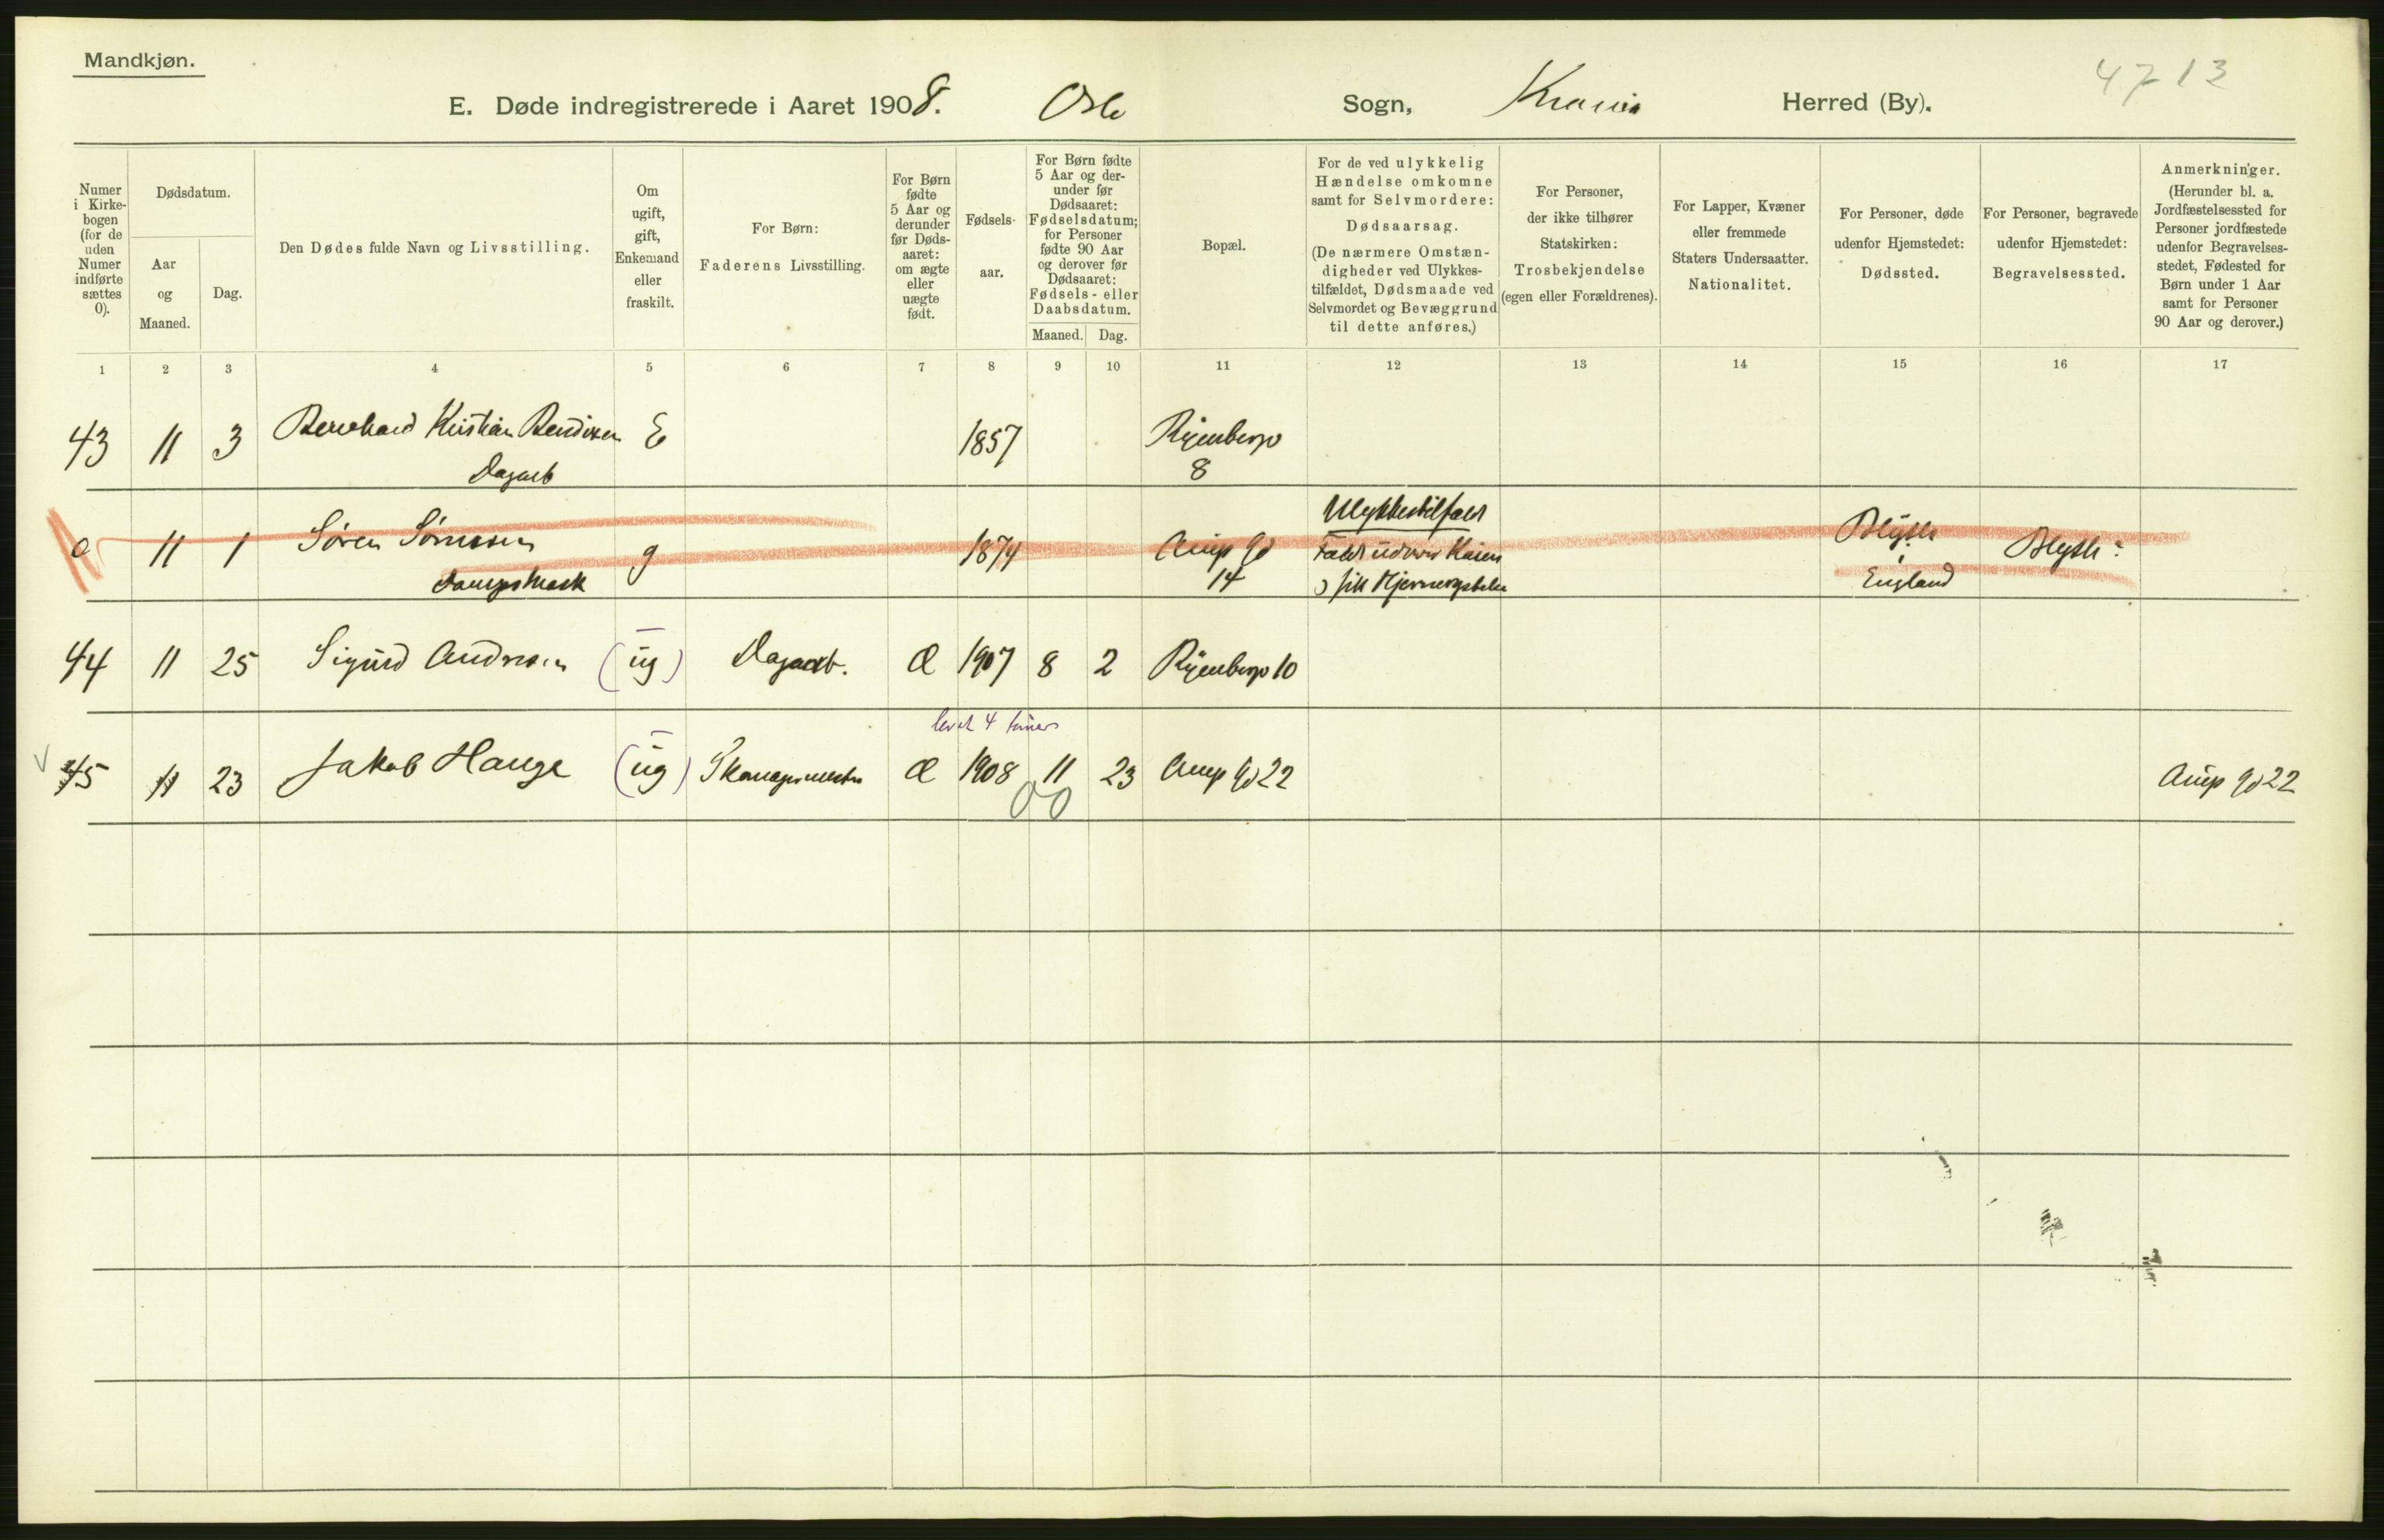 Mandkjøn.
4713
E. Døde indregistrerede i Aaret 1908. Oslo Sogn, Kra­nia Herred (By).
Numer i Kirke-bogen (for de uden Numer indførte sættes 0).
Dødsdatum.
Aar og Maaned.
Dag.
Den Dødes fulde Navn og Livsstilling.
Om ugift, gift, Enkemand eller fraskilt.
For Børn: Faderens Livsstilling.
For Børn fødte 5 Aar og derunder før Døds-aaret: om ægte eller uægte født.
Fødsels-aar.
For Børn fødte 5 Aar og der-under før Dødsaaret: Fødselsdatum; for Personer fødte 90 Aar og derover før Dødsaaret: Fødsels- eller Daabsdatum.
Maaned. Dag.
Bopæl.
For de ved ulykkelig Hændelse omkomne samt for Selvmordere: Dødsaarsag. (De nærmere Omstæn-digheder ved Ulykkes-tilfældet, Dødsmaade ved Selvmordet og Bevæggrund til dette anføres.)
For Personer, der ikke tilhører Statskirken: Trosbekjendelse (egen eller Forældrenes).
For Lapper, Kvæner eller fremmede Staters Undersaatter. Nationalitet.
For Personer, døde udenfor Hjemstedet: Dødssted.
For Personer, begravede udenfor Hjemstedet: Begravelsessted.
Anmerkninger. (Herunder bl. a. Jordfæstelsessted for Personer jordfæstede udenfor Begravelses-stedet, Fødested for Børn under 1 Aar samt for Personer 90 Aar og derover.)
1 2 3 4 5 6 7 8 9 10 11 12 13 14 15 16 17
43 11 3 Bernhard Kristian Bendixen E 1857 Ryenbergv
Dagarb 8
Ulykkestilfæld
0 11 1 Søren Sørensen g 1874 Arup gd Faldt udover Kaien Blyth Blyth
14 i England
44 11 25 Sigurd Andresen (ug) Dagarb. Æ 1907 8 2 Ryenbergv 10
levet 4 timer
45 11 23 Jakob Hauge (ug) Æ 1908 11 23 Arup gd 22 Arup gd 22